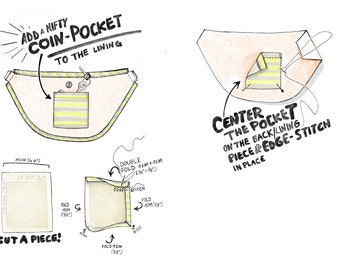 ADD A NIFTY
COIN-POCKET
TO THE LINING
CENTER
THE POCKET
ON THE BACK/LINING
PIECE & EDGE-STITCH
IN PLACE
DOUBLE
FOLD
EDGE-STITCH
FOLD
1CM
FOLD
FOLD 1CM
CUT A PIECE!